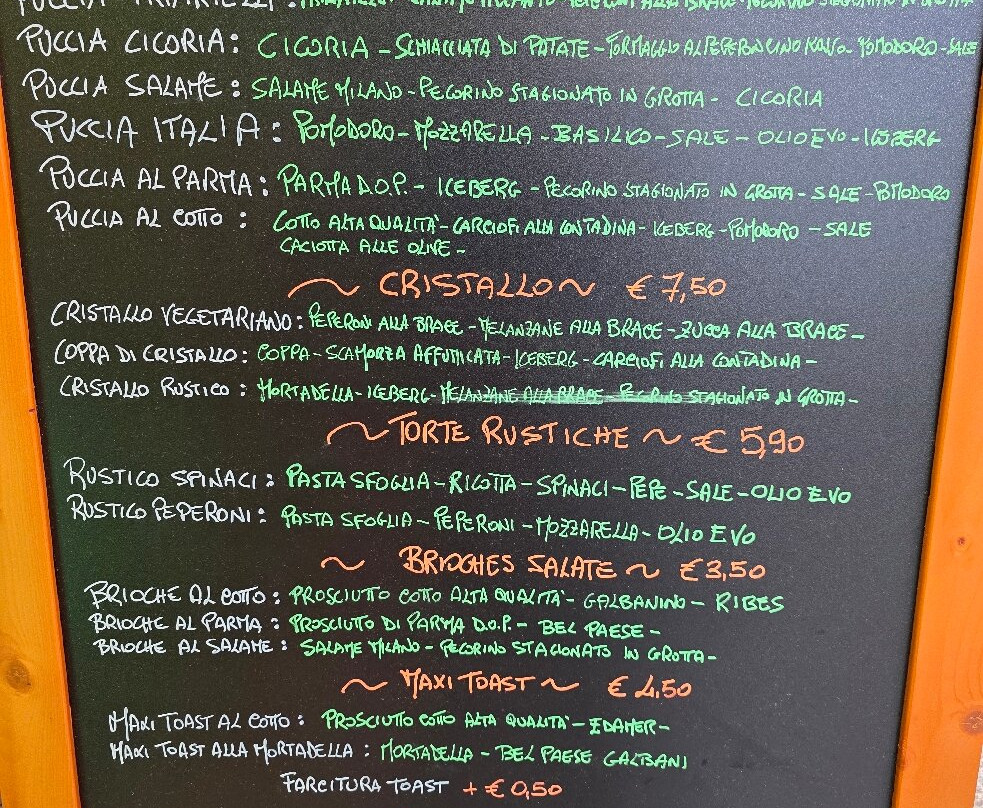 PUCCIA CICORIA: CICORIA - SCHIACCIATA DI PATATE - FORMAGGIO AL PEPERONCINO ROSSO - POMODORO - SALE
PUCCIA SALAME: SALAME MILANO - PECORINO STAGIONATO IN GROTTA - CICORIA
PUCCIA ITALIA: POMODORO - MOZZARELLA - BASILICO - SALE - OLIO EVO - ICEBERG
PUCCIA AL PARMA: PARMA D.O.P. - ICEBERG - PECORINO STAGIONATO IN GROTTA - SALE - POMODORO
PUCCIA AL COTTO: COTTO ALTA QUALITÀ - CARCIOFI ALLA CONTADINA - ICEBERG - POMODORO - SALE
CACIOTTA ALLE OLIVE -
~ CRISTALLO ~ € 7,50
CRISTALLO VEGETARIANO: PEPERONI ALLA BRACE - MELANZANE ALLA BRACE - ZUCCA ALLA BRACE -
COPPA DI CRISTALLO: COPPA - SCAMORZA AFFUMICATA - ICEBERG - CARCIOFI ALLA CONTADINA -
CRISTALLO RUSTICO: MORTADELLA - ICEBERG - MELANZANE ALLA BRACE - PECORINO STAGIONATO IN GROTTA -
~ TORTE RUSTICHE ~ € 5,90
RUSTICO SPINACI: PASTA SFOGLIA - RICOTTA - SPINACI - PEPE - SALE - OLIO EVO
RUSTICO PEPERONI: PASTA SFOGLIA - PEPERONI - MOZZARELLA - OLIO EVO
~ BRIOCHES SALATE ~ € 3,50
BRIOCHE AL COTTO: PROSCIUTTO COTTO ALTA QUALITÀ - GALBANINO - RIBES
BRIOCHE AL PARMA: PROSCIUTTO DI PARMA D.O.P. - BEL PAESE -
BRIOCHE AL SALAME: SALAME MILANO - PECORINO STAGIONATO IN GROTTA -
~ MAXI TOAST ~ € 4,50
MAXI TOAST AL COTTO: PROSCIUTTO COTTO ALTA QUALITÀ - EDAMER -
MAXI TOAST ALLA MORTADELLA: MORTADELLA - BEL PAESE GALBANI
FARCITURA TOAST + € 0,50